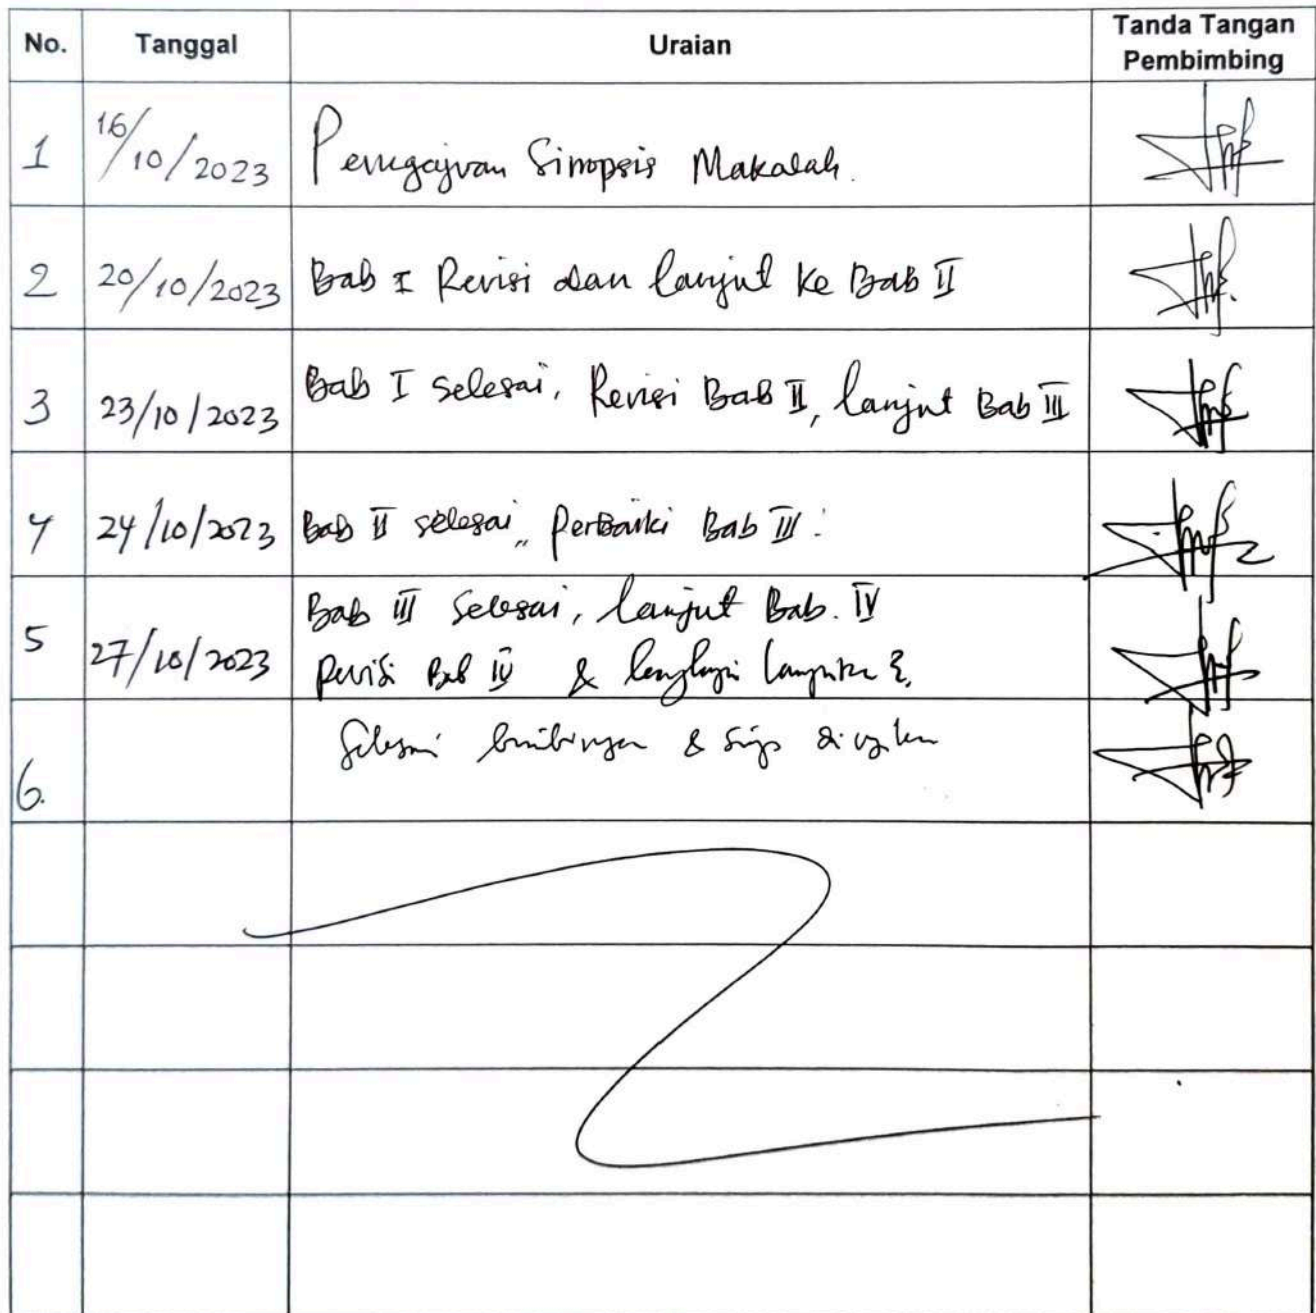 No. Tanggal Uraian Tanda Tangan Pembimbing
1 16/10/2023 Pengajuan Sinopsis Makalah.
2 20/10/2023 Bab I Revisi dan lanjut ke Bab II
3 23/10/2023 Bab I selesai, Revisi Bab II, lanjut Bab III
4 24/10/2023 Bab II selesai, Perbaiki Bab III.
5 27/10/2023 Bab III Selesai, lanjut Bab. IV
Revisi Bab IV & lengkapi
6. Selesai bimbingan & siap diujikan